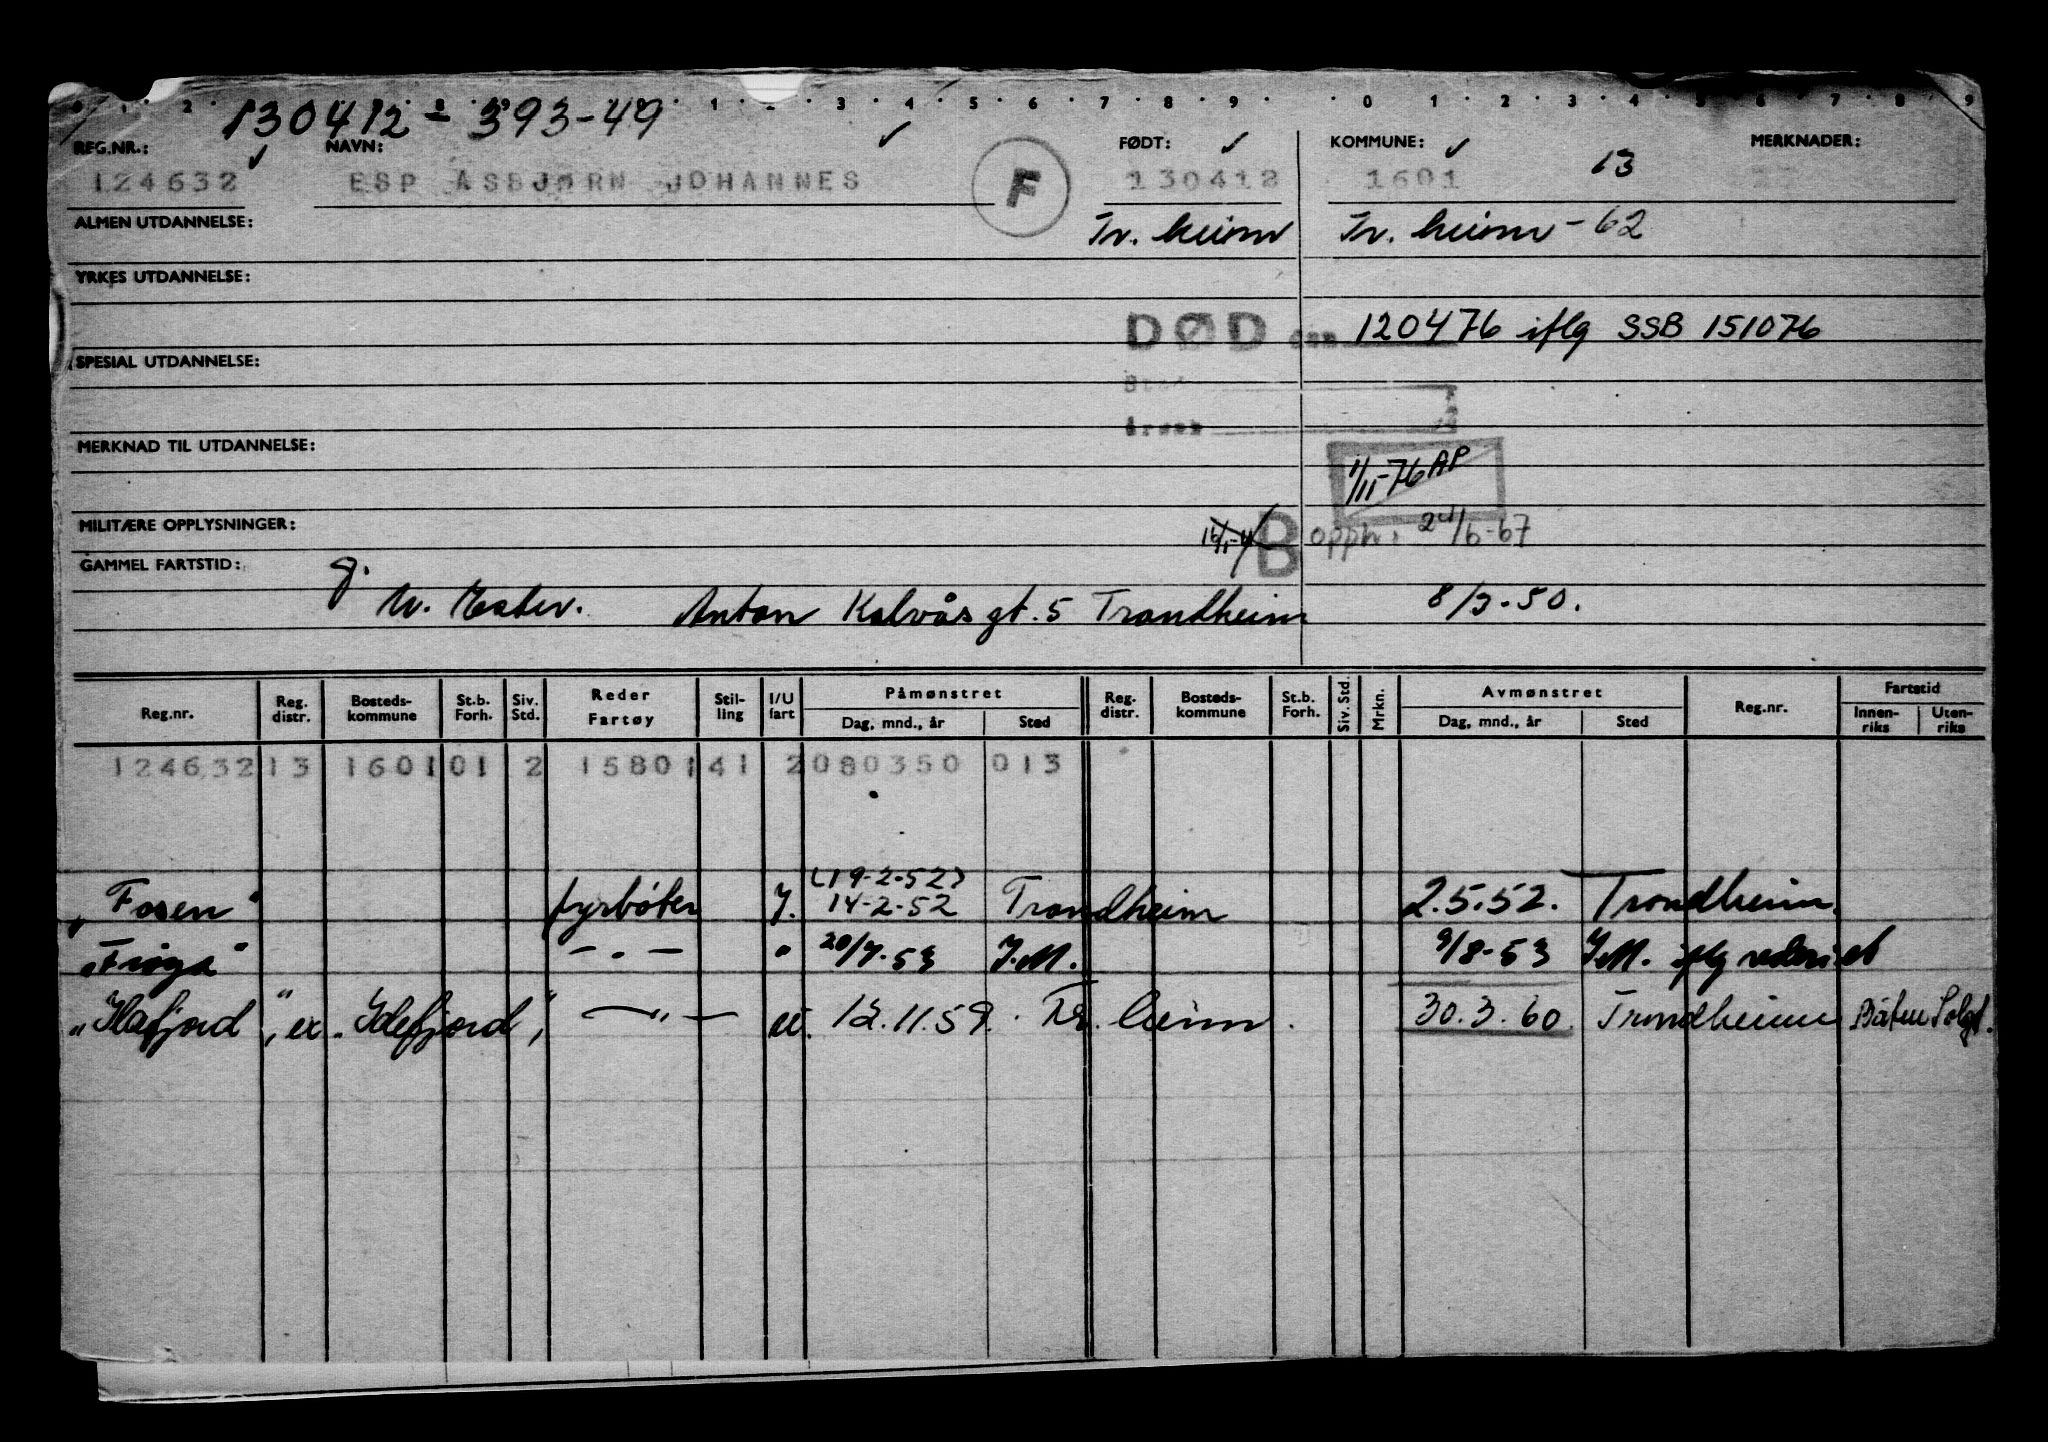 0 1 2 1 2 3 4 5 6 7 8 9 0 1 2 3 4 5 6 7 8 9
130412 - 393-49
REG.NR.: NAVN: FØDT: KOMMUNE: MERKNADER:
124632 ESP ASBJØRN JOHANNES F 130412 1601 13
ALMEN UTDANNELSE: Tr. heim Tr. heim - 62
YRKES UTDANNELSE:
DØD den 120476 iflg SSB 151076
SPESIAL UTDANNELSE:
Sted
årsak
MERKNAD TIL UTDANNELSE:
1/11-76 AP
MILITÆRE OPPLYSNINGER: B opph. 24/6-67
GAMMEL FARTSTID: g.
Anton Kalvås gt. 5 Trondheim 8/3-50.
Reg.nr. Reg. distr. Bosteds-kommune St.b. Forh. Siv. Std. Reder Fartøy Stil-ling I/U fart Påmønstret Dag, mnd., år Sted Reg. distr. Bosteds-kommune St.b. Forh. Siv. Std. Mrkn. Avmønstret Dag, mnd., år Sted Reg.nr. Fartstid Innen-riks Uten-riks
124632 13 1601 01 2 1580 141 2 080350 013
(19-2-52)
"Fosen" fyrbøter I. 14-2-52 Trondheim 2.5.52. Trondheim.
"Frøya" -"- " 20/7-53 I.M. 9/8-53 I.M. iflg rederiet
"Ilafjord", ex "Idefjord", -"- 12.11.59. Tr. heim. 30.3.60. Trondheim Båten Solgt.